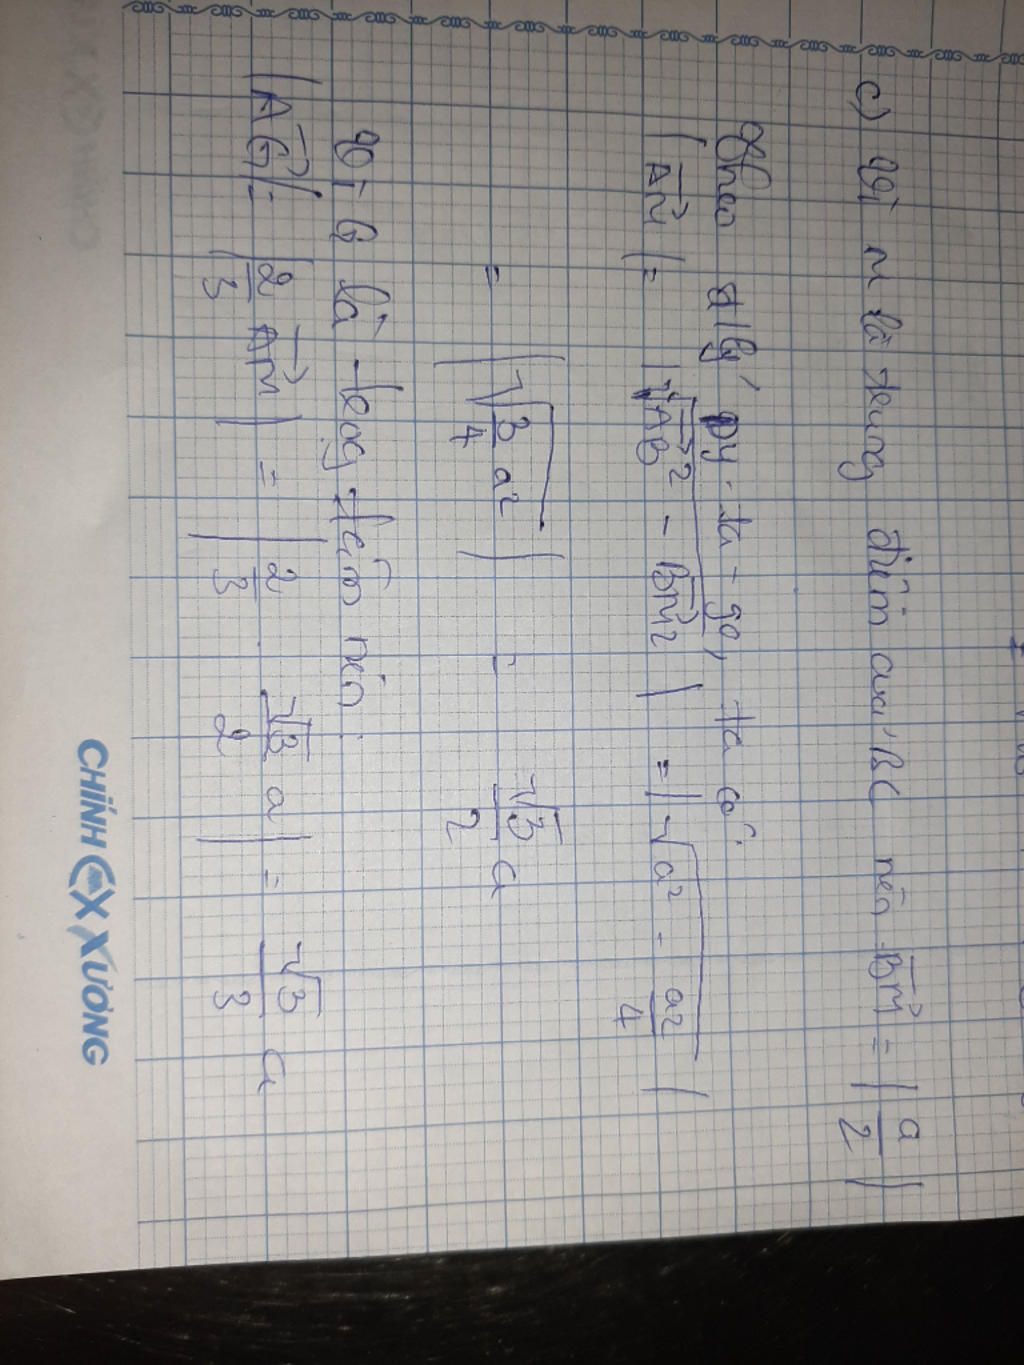 c) Gọi M là trung điểm của BC nên $\overrightarrow{BM}$ = |$\frac{a}{2}$|
Theo đ/lý py-ta-go, ta có:
|$\overrightarrow{AM}$| = |$\sqrt{\overrightarrow{AB}^2 - \overrightarrow{BM}^2}$| = |$\sqrt{a^2 - \frac{a^2}{4}}$|
= |$\sqrt{\frac{3}{4}a^2}$| = $\frac{\sqrt{3}}{2}$ a
Vì G là trọg tâm nên:
|$\overrightarrow{AG}$| = |$\frac{2}{3}\overrightarrow{AM}$| = |$\frac{2}{3} \cdot \frac{\sqrt{3}}{2}$ a| = $\frac{\sqrt{3}}{3}$ a
CHÍNH XƯƠNG